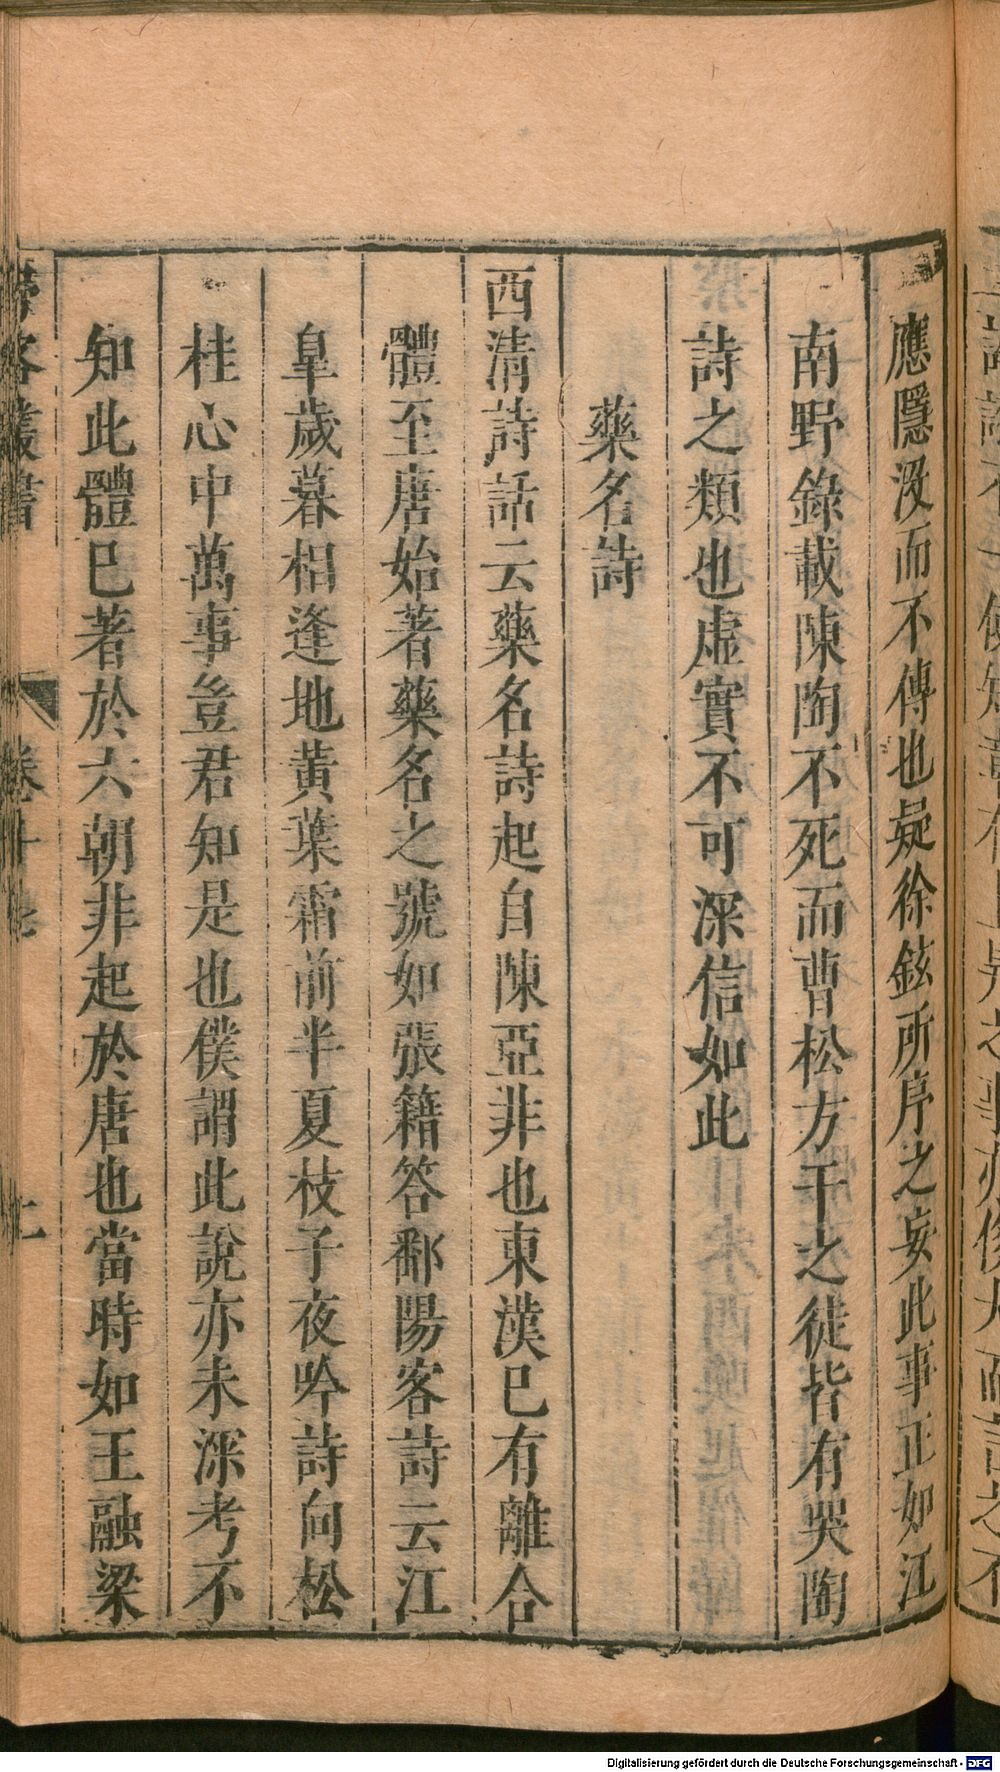 應隱沒而不傳也疑徐鉉所序之妄此事正如江
南野錄載陳陶不死而曹松方干之徒皆有哭陶
詩之類也虛實不可深信如此
藥名詩
西清詩話云藥名詩起自陳亞非也東漢已有離合
體至唐始著藥名之號如張籍答鄱陽客詩云江
皐歲暮相逢地黃葉霜前半夏枝子夜吟詩向松
桂心中萬事豈君知是也僕謂此說亦未深考不
知此體已著於六朝非起於唐也當時如王融梁
叢書 卷十
Digitalisierung gefördert durch die Deutsche Forschungsgemeinschaft - DFG